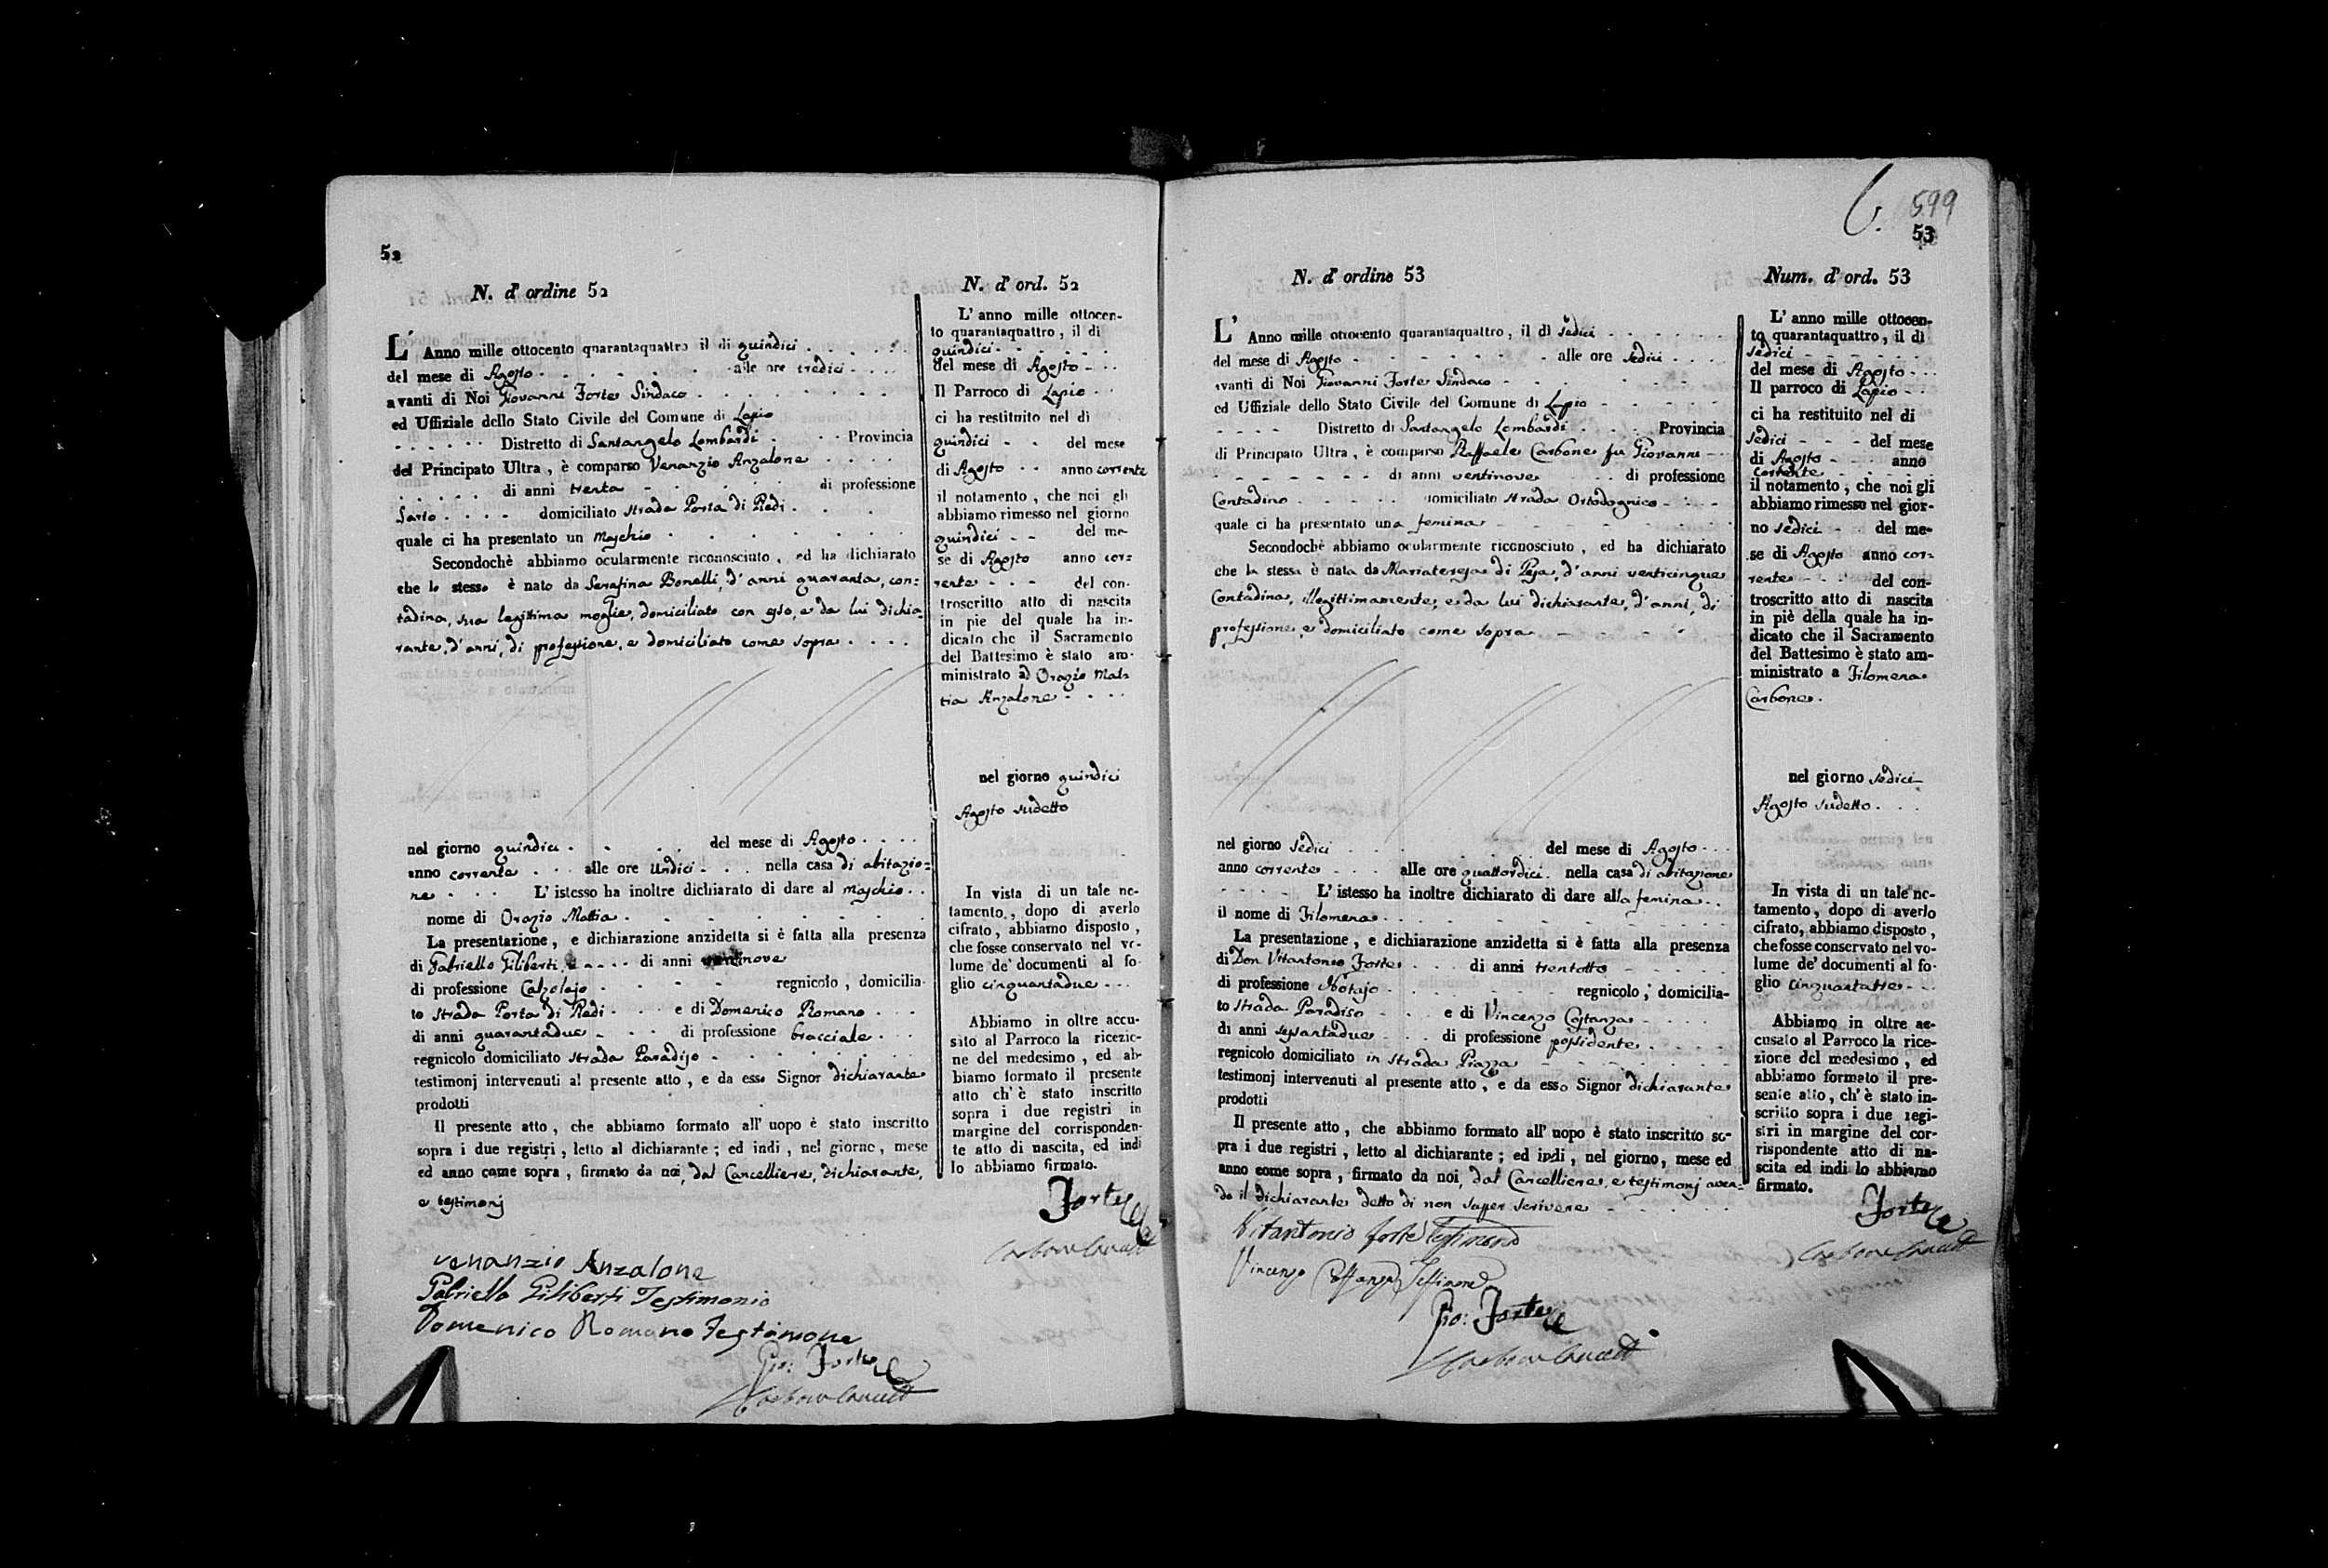 52
N. d' ordine 52
L' Anno mille ottocento quarantaquattro il di quindici
del mese di Agosto alle ore tredici
avanti di Noi Giovanni Forte Sindaco
ed Uffiziale dello Stato Civile del Comune di Lapio
Distretto di Santangelo Lombardi Provincia
del Principato Ultra, è comparso Venanzio Anzalone
di anni trenta di professione
Sarto domiciliato strada Porta di Redi
quale ci ha presentato un Maschio
Secondochè abbiamo ocularmente riconosciuto, ed ha dichiarato
che lo stesso è nato da Serafina Bonelli, d' anni quaranta, con=
tadina, sua legittima moglie, domiciliata con esso, e da lui dichia=
rante, d' anni, di professione, e domiciliato come sopra
nel giorno quindici del mese di Agosto
anno corrente alle ore undici nella casa di abitazio=
ne L' istesso ha inoltre dichiarato di dare al maschio
nome di Orazio Mattia
La presentazione, e dichiarazione anzidetta si è fatta alla presenza
di Gabriello Giliberti, di anni ventinove
di professione Calzolajo regnicolo, domicilia-
to strada Porta di Redi e di Domenico Romano
di anni quarantadue di professione bracciale
regnicolo domiciliato strada Paradiso
testimonj intervenuti al presente atto, e da esso Signor dichiarante
prodotti
Il presente atto, che abbiamo formato all' uopo è stato inscritto
sopra i due registri, letto al dichiarante; ed indi, nel giorno, mese
ed anno come sopra, firmato da noi, dal Cancelliere, dichiarante,
e testimonj
venanzio Anzalone
Gabriello Giliberti Testimonio
Domenico Romano Testimone
Gio: Forte
Carbone Cancell
N. d' ord. 52
L' anno mille ottocen-
to quarantaquattro, il di
quindici
del mese di Agosto
Il Parroco di Lapio
ci ha restituito nel di
quindici del mese
di Agosto anno corrente
il notamento, che noi gli
abbiamo rimesso nel giorno
quindici del me-
se di Agosto anno cor=
rente del con-
troscritto atto di nascita
in piè del quale ha in-
dicato che il Sacramento
del Battesimo è stato am-
ministrato ad Orazio Mat=
tia Anzalone
nel giorno quindici
Agosto sudetto
In vista di un tale no-
tamento, dopo di averlo
cifrato, abbiamo disposto,
che fosse conservato nel vo-
lume de' documenti al fo-
glio cinquantadue
Abbiamo in oltre accu-
sato al Parroco la ricezio-
ne del medesimo, ed ab-
biamo formato il presente
atto ch' è stato inscritto
sopra i due registri in
margine del corrisponden-
te atto di nascita, ed indi
lo abbiamo firmato.
Forte
Carbone Cancell
6. 599
53
N. d' ordine 53
L' Anno mille ottocento quarantaquattro, il di sedici
del mese di Agosto alle ore sedici
avanti di Noi Giovanni Forte Sindaco
ed Uffiziale dello Stato Civile del Comune di Lapio
Distretto di Santangelo Lombardi Provincia
di Principato Ultra, è comparso Raffaele Carbone fu Giovanni
di anni ventinove di professione
Contadino domiciliato strada Ortodognico
quale ci ha presentato una femina
Secondochè abbiamo ocularmente riconosciuto, ed ha dichiarato
che la stessa è nata da Mariateresa di Pesa, d' anni venticinque
Contadina, illegittimamente, e da lui dichiarante, d' anni, di
professione, e domiciliato come sopra
nel giorno sedici del mese di Agosto
anno corrente alle ore quattordici nella casa di abitazione
L' istesso ha inoltre dichiarato di dare alla femina
il nome di Filomena
La presentazione, e dichiarazione anzidetta si è fatta alla presenza
di Don Vitantonio Forte di anni trentotto
di professione regnicolo, domicilia-
to strada Paradiso e di Vincenzo Costanza
di anni sessantadue di professione possidente
regnicolo domiciliato in strada Piazza
testimonj intervenuti al presente atto, e da esso Signor dichiarante
prodotti
Il presente atto, che abbiamo formato all' uopo è stato inscritto so-
pra i due registri, letto al dichiarante; ed indi, nel giorno, mese ed
anno come sopra, firmato da noi, dal Cancelliere, e testimonj aven=
do il dichiarante detto di non saper scrivere
Vitantonio Forte Testimonio
Vincenzo Costanza Testimone
Gio: Forte
Carbone Cancell
Num. d' ord. 53
L' anno mille ottocen-
to quarantaquattro, il di
sedici
del mese di Agosto
Il parroco di Lapio
ci ha restituito nel di
sedici del mese
di Agosto anno
corrente
il notamento, che noi gli
abbiamo rimesso nel gior-
no sedici del me-
se di Agosto anno cor=
rente del con-
troscritto atto di nascita
in piè della quale ha in-
dicato che il Sacramento
del Battesimo è stato am-
ministrato a Filomena
Carbone.
nel giorno sedici
Agosto sudetto
In vista di un tale no-
tamento, dopo di averlo
cifrato, abbiamo disposto,
che fosse conservato nel vo-
lume de' documenti al fo-
glio cinquantatre
Abbiamo in oltre ac-
cusato al Parroco la rice-
zione del medesimo, ed
abbiamo formato il pre-
sente atto, ch' è stato in-
scritto sopra i due regi-
stri in margine del cor-
rispondente atto di na-
scita ed indi lo abbiamo
firmato.
Forte
Carbone Cancell